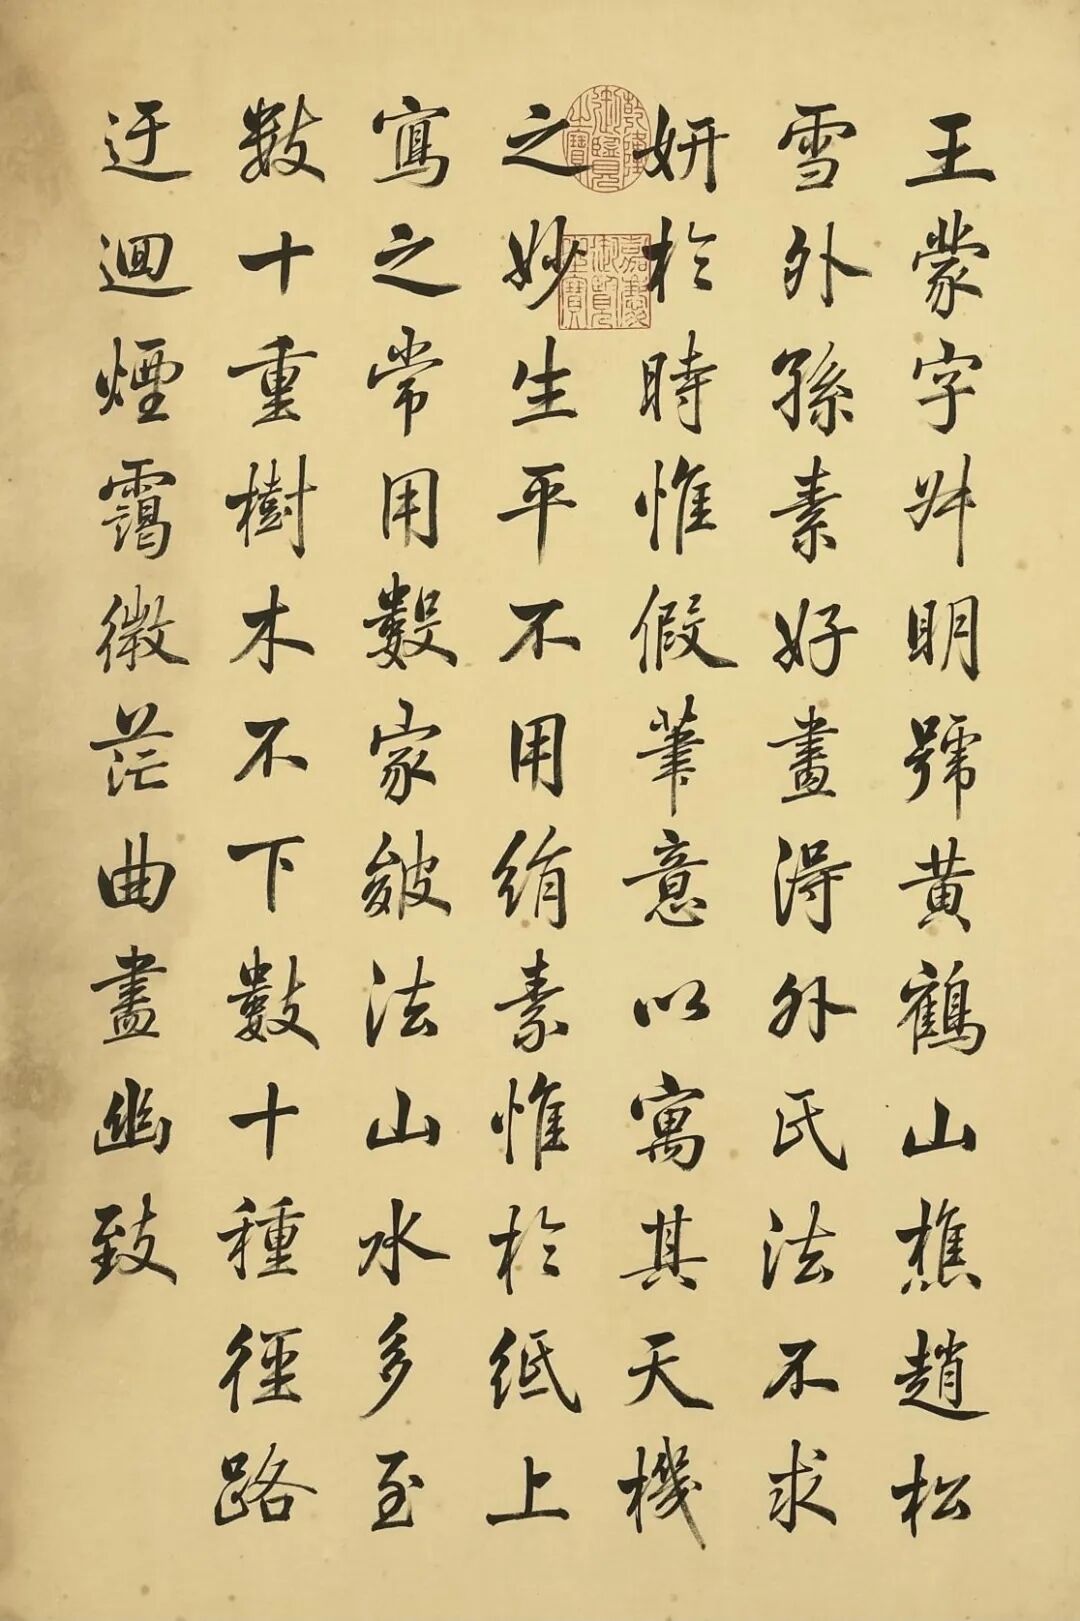 王蒙字叔明號黃鶴山樵趙松
雪外孫素好畫得外氏法不求
妍於時惟假筆意以寓其天機
之妙生平不用絹素惟於紙上
寫之常用數家皴法山水多至
數十重樹木不下數十種徑路
迂迴煙靄微茫曲盡幽致
乾隆御覽之寶
嘉慶御覽之寶